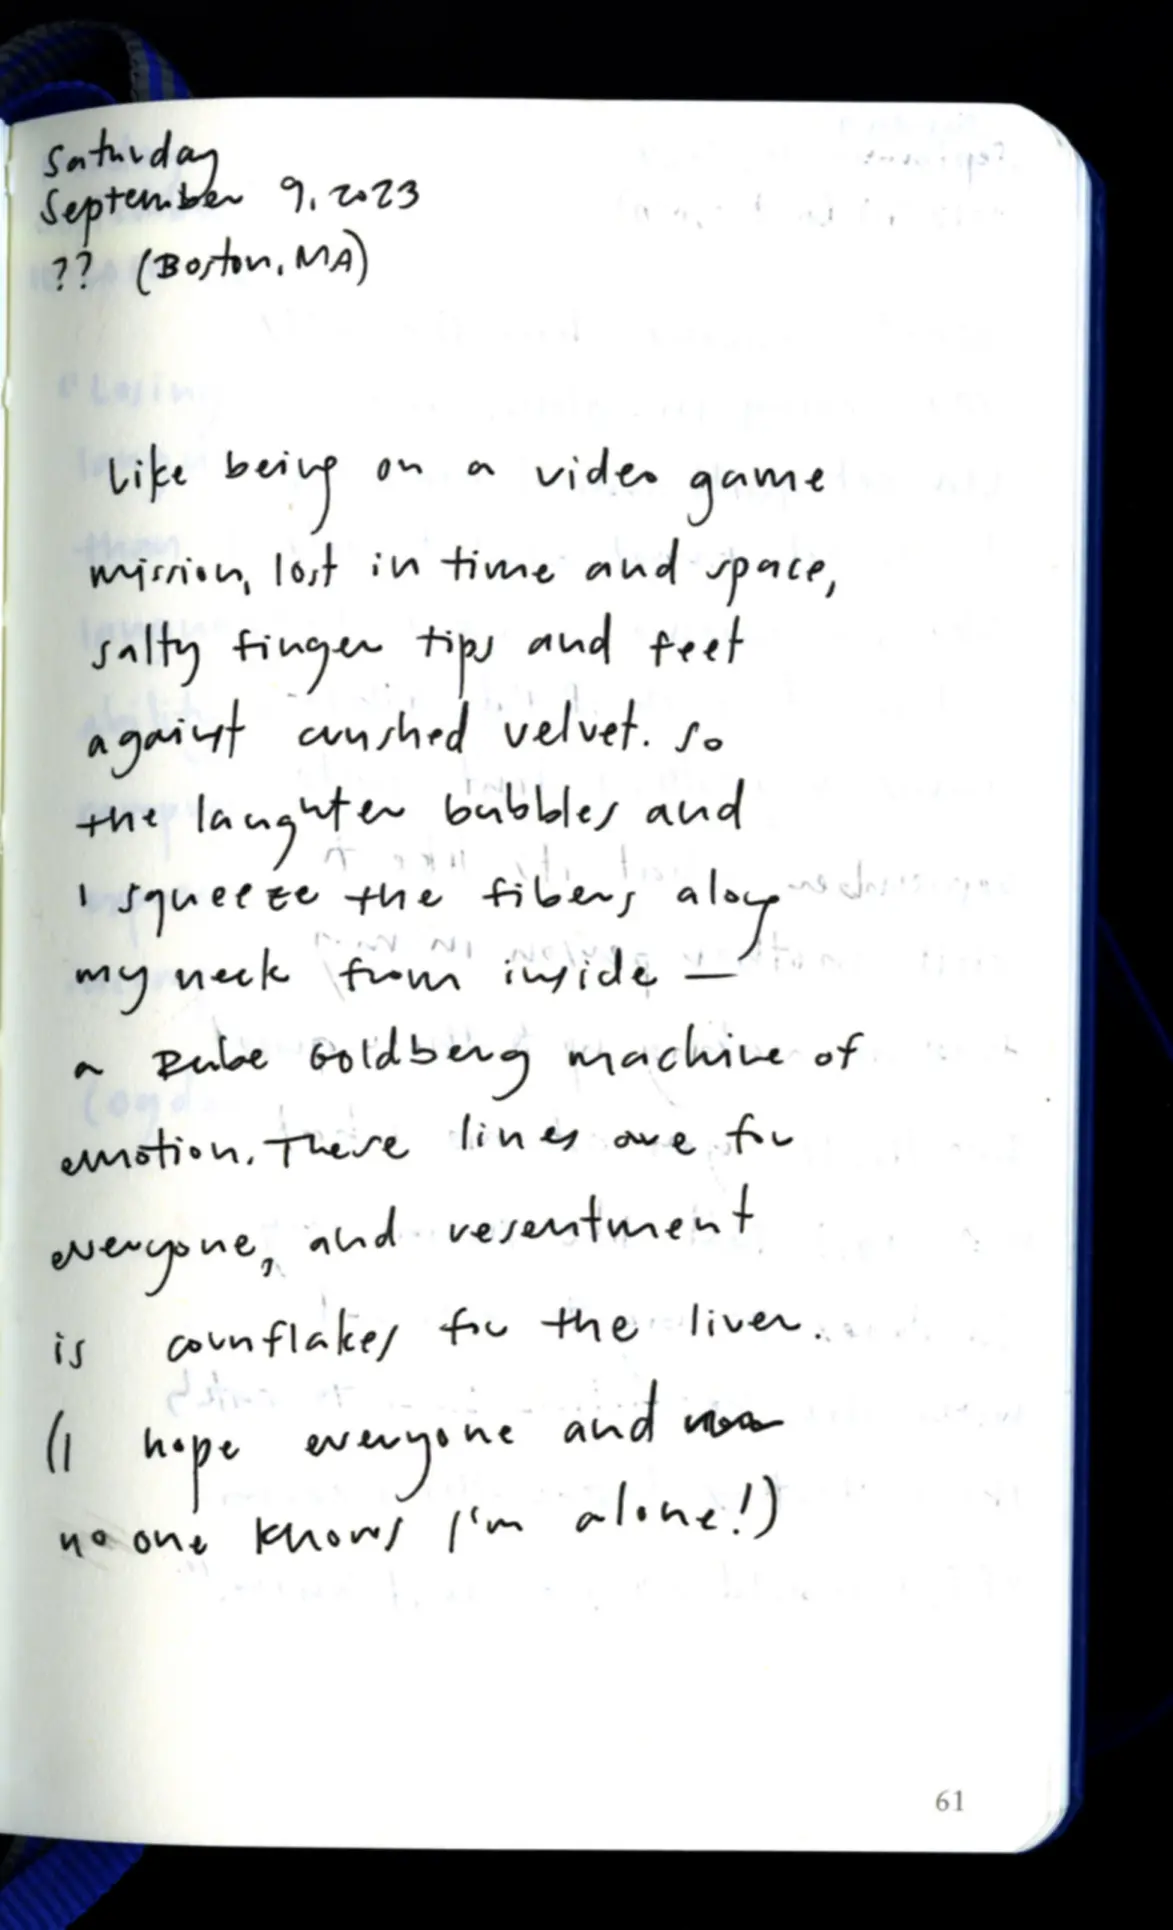 Saturday
September 9, 2023
?? (Boston, MA)
Like being on a video game
mission, lost in time and space,
salty finger tips and feet
against crushed velvet. So
the laughter bubbles and
I squeeze the fibers along
my neck from inside —
a Rube Goldberg machine of
emotion. These lines are for
everyone, and resentment
is cornflakes for the liver.
(I hope everyone and
no one knows I'm alone!)
61